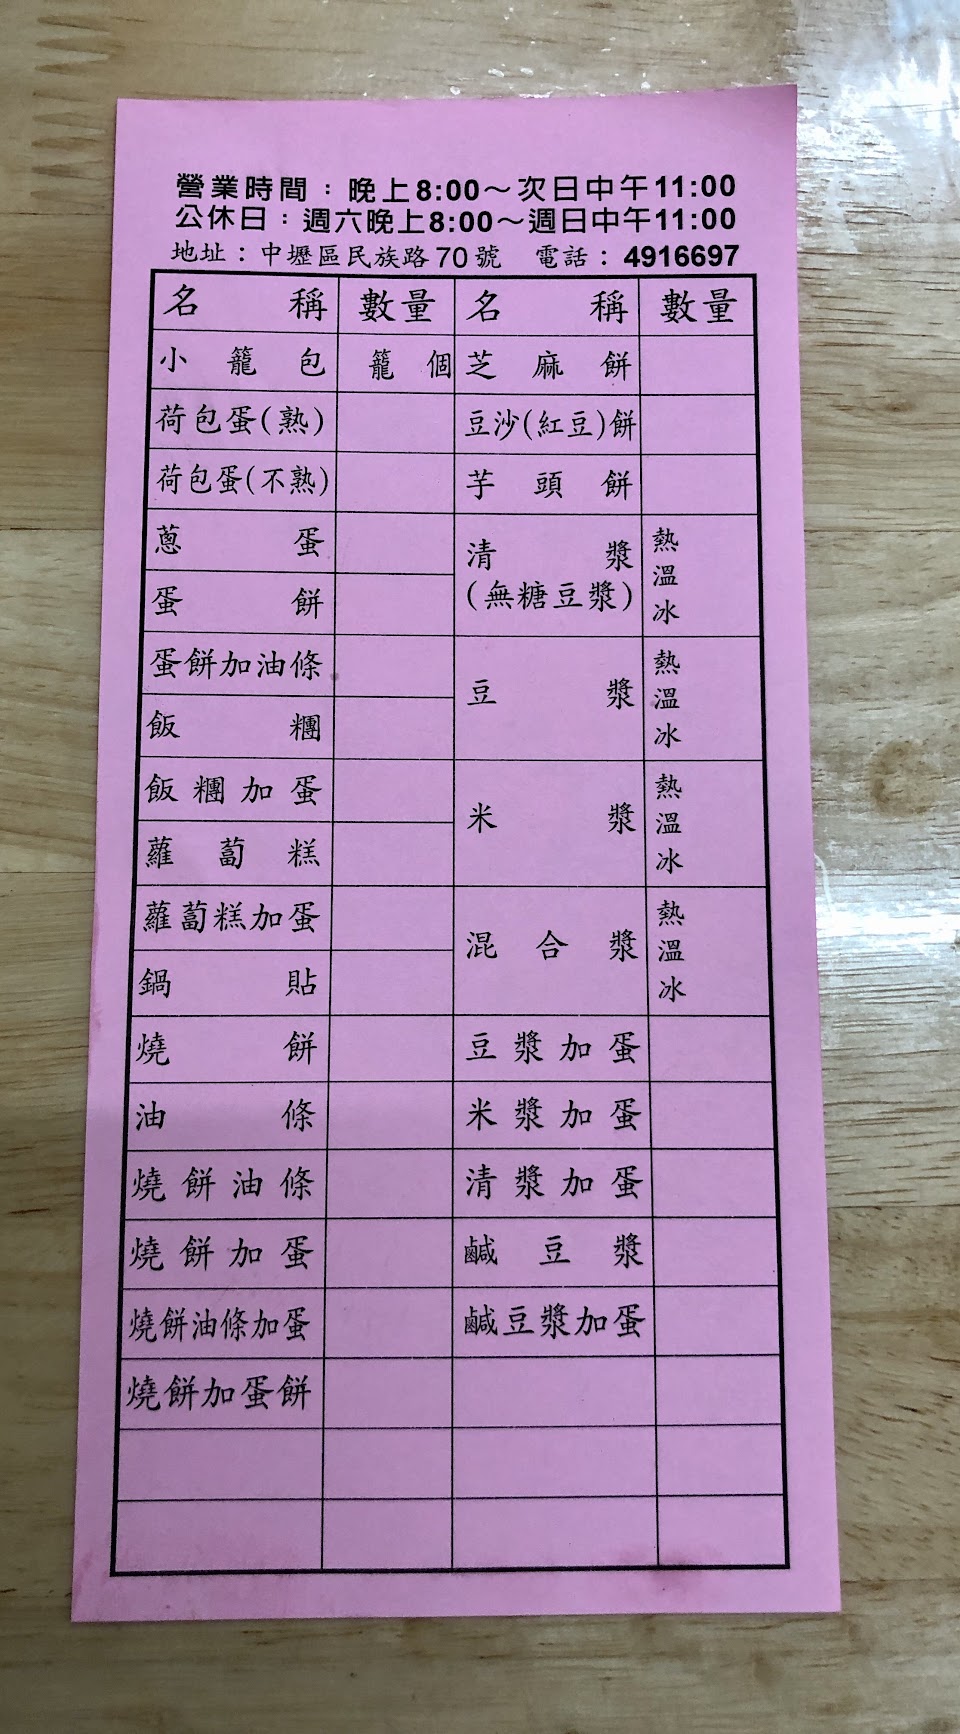 營業時間：晚上8:00～次日中午11:00
公休日：週六晚上8:00～週日中午11:00
地址：中壢區民族路70號 電話：4916697
名稱 數量 名稱 數量
小籠包 籠 個 芝麻餅
荷包蛋(熟) 豆沙(紅豆)餅
荷包蛋(不熟) 芋頭餅
蔥蛋 清漿 熱
(無糖豆漿) 溫
蛋餅 冰
蛋餅加油條 豆漿 熱
溫
飯糰 冰
飯糰加蛋 米漿 熱
溫
蘿蔔糕 冰
蘿蔔糕加蛋 混合漿 熱
溫
鍋貼 冰
燒餅 豆漿加蛋
油條 米漿加蛋
燒餅油條 清漿加蛋
燒餅加蛋 鹹豆漿
燒餅油條加蛋 鹹豆漿加蛋
燒餅加蛋餅